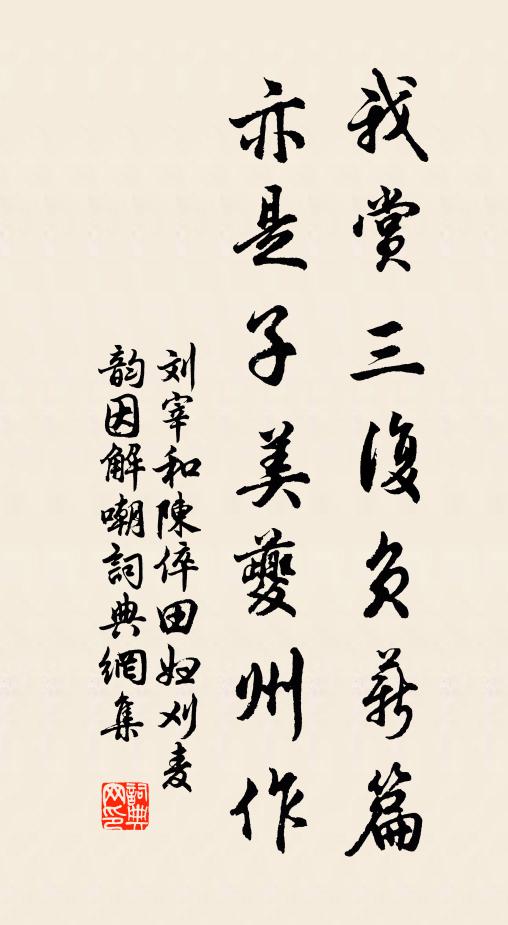 我赏三復负薪篇
亦是子美夔州作
刘宰和陳倅田妇刈麦
韵因解嘲詞典網集
詞典
网印